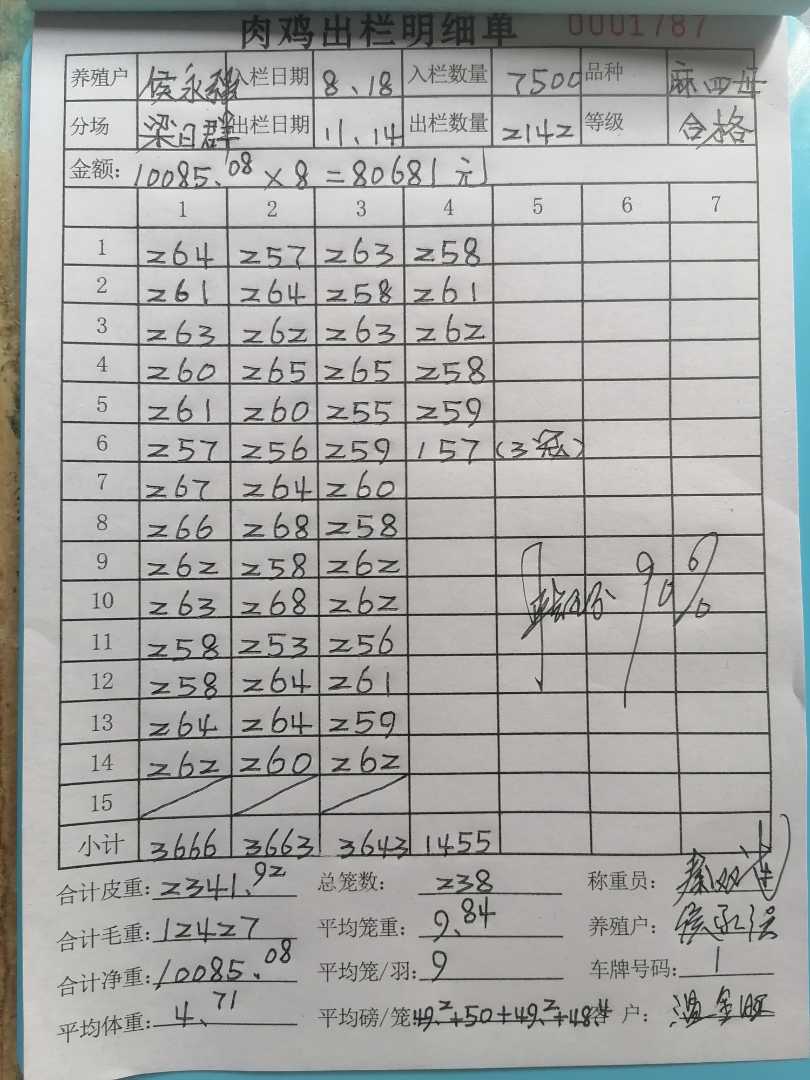 肉鸡出栏明细单 0001787
养殖户 侯永 入栏日期 8.18 入栏数量 7500 品种 麻四
分场 梁日群 出栏日期 11.14 出栏数量 2142 等级 合格
金额: 10085.08×8=80681元
1 2 3 4 5 6 7
1 264 257 263 258
2 261 264 258 261
3 263 262 263 262
4 260 265 265 258
5 261 260 255 259
6 257 256 259 157 (3冠)
7 267 264 260
8 266 268 258
9 262 258 262
10 263 268 262
11 258 253 256
12 258 264 261
13 264 264 259
14 262 260 262
15
小计 3666 3663 3643 1455
合计皮重: 2341.92 总笼数: 238 称重员:
合计毛重: 12427 平均笼重: 9.84 养殖户: 侯
合计净重: 10085.08 平均笼/羽: 9 车牌号码: 1
平均体重: 4.71 平均磅/笼 49.2+50+49.2+48.4 客 户: 温金旺